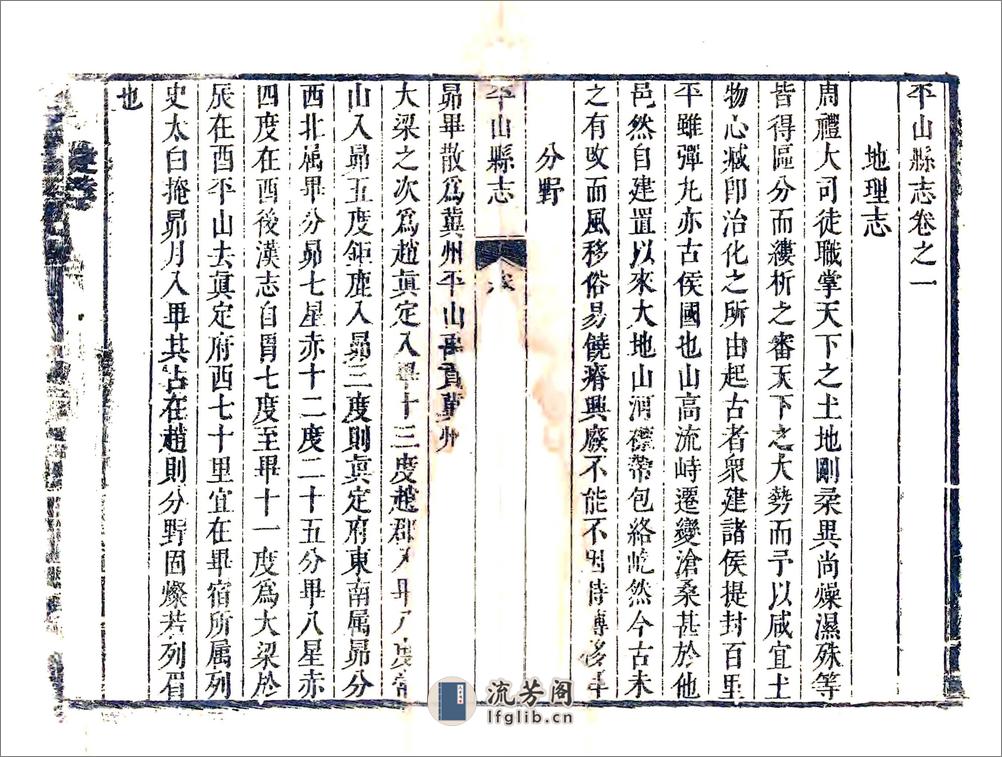 平山縣志卷之一
地理志
周禮大司徒職掌天下之土地則柔異尚燥濕殊等
皆得區分而縷析之審天下之大勢而予以咸宜土
物心臧卽治化之所由起古者衆建諸侯提封百里
平雖彈丸亦古侯國也山高流峙遷變滄桑甚於他
邑然自建置以來大地山河襟帶包絡屹然今古未
之有改而風移俗易饒瘠興廢不能不因時轉移
分野
平山縣志
昴畢散爲冀州平山禹貢冀州
大梁之次爲趙眞定入畢十三度趙郡入畢八度常
山入昴五度鉅鹿入昴三度則眞定府東南属昴分
西北属畢分昴七星赤十二度二十五分畢八星赤
四度在酉後漢志自胃七度至畢十一度爲大梁於
辰在酉平山去眞定府西七十里宜在畢宿所属列
史太白掩昴月入畢其占在趙則分野固燦若列眉
也
流芳阁
lfglib.cn